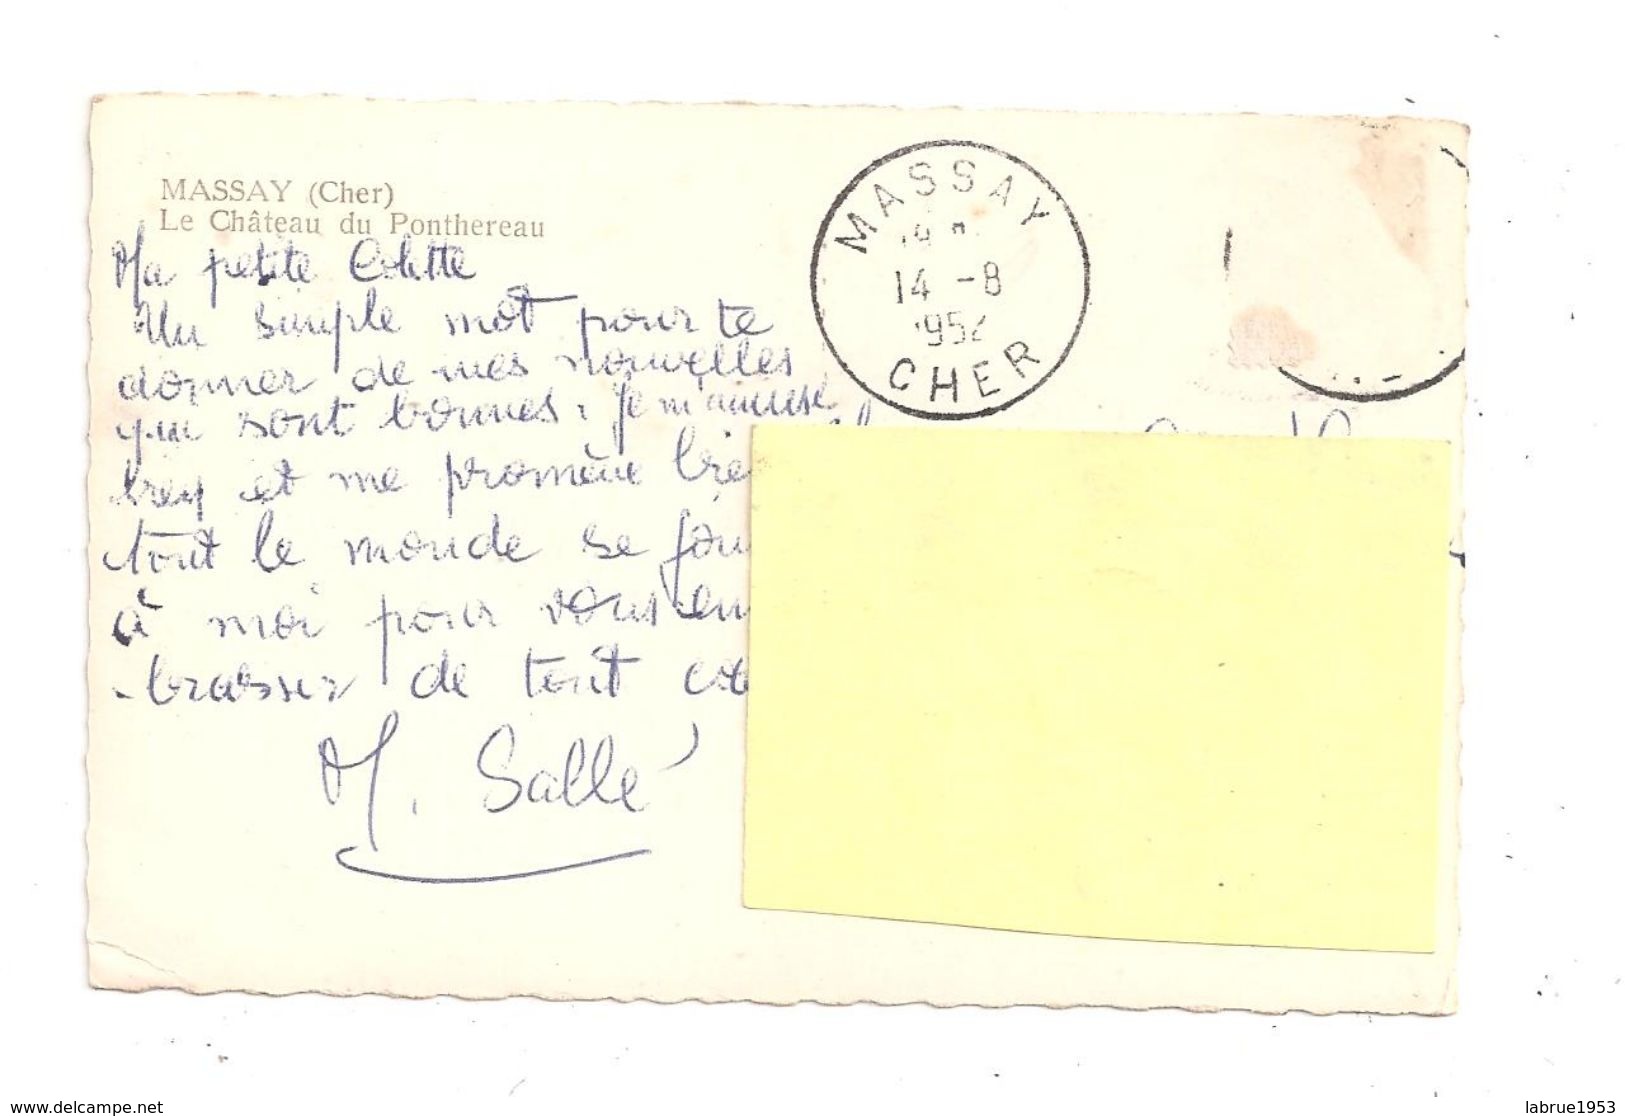 MASSAY (Cher)
Le Château du Ponthereau
Ma petite Colette
Un simple mot pour te
donner de mes nouvelles
qui sont bonnes. je m'amuse
bien et me promène bien
tout le monde se
à moi pour vous em
-brasser de tout
M. Sallé
MASSAY
14 -8
1952
CHER
www.delcampe.net
labrue1953